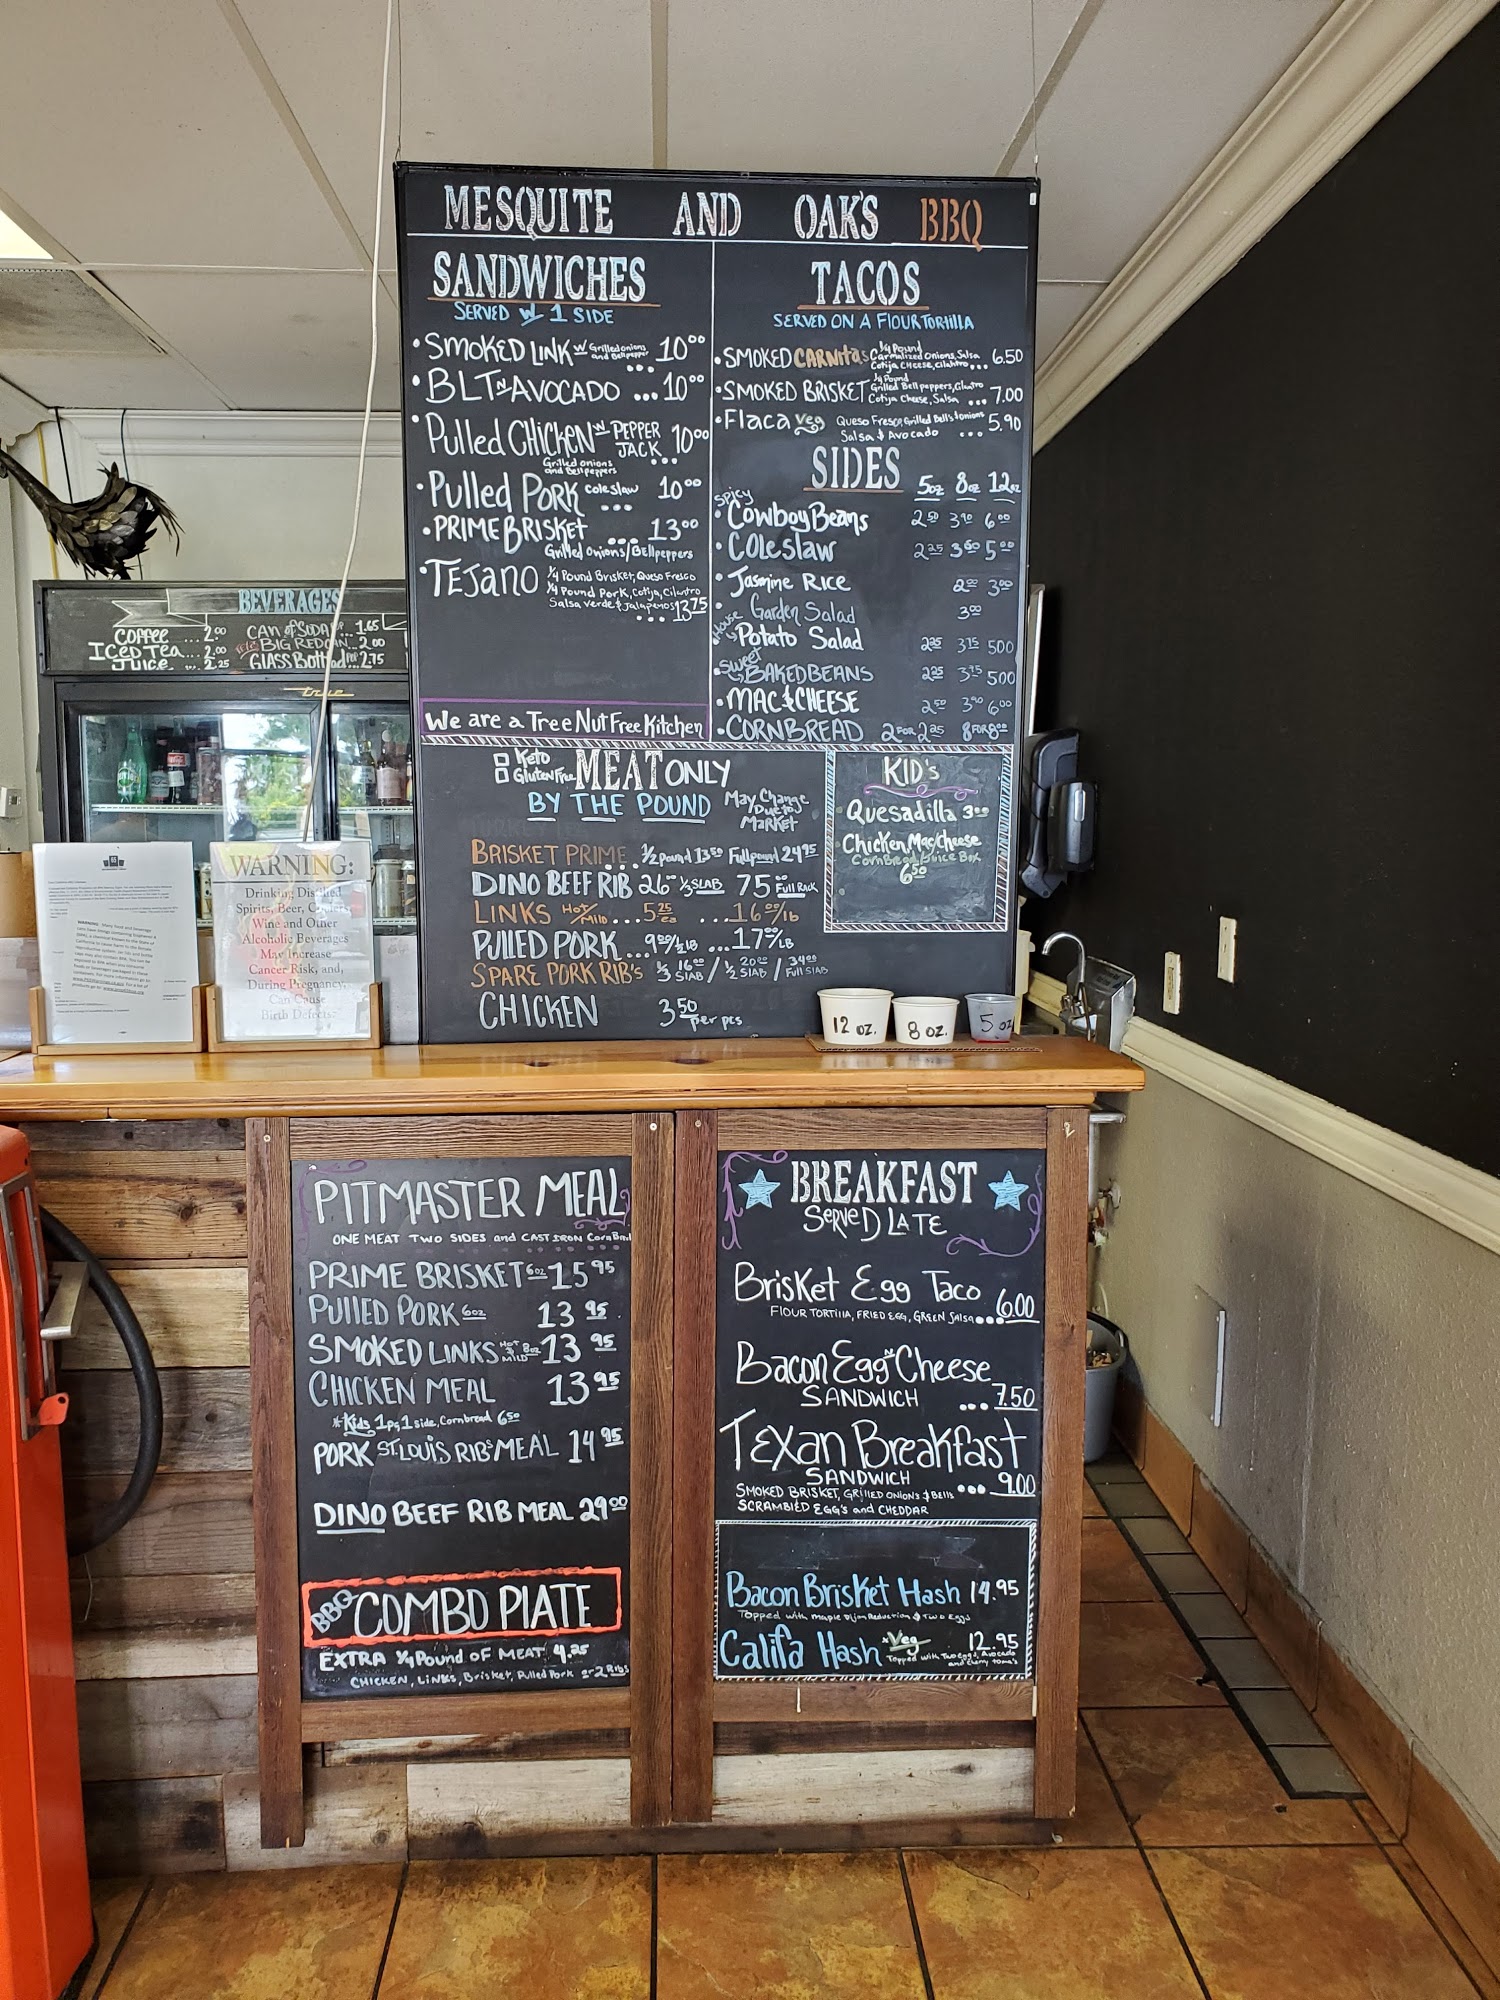 MESQUITE AND OAK'S BBQ
SANDWICHES
SERVED W/ 1 SIDE
• SMOKED LINK W Grilled onions and Bellpepper ... 10⁰⁰
• BLT N AVOCADO ... 10⁰⁰
• Pulled CHICKEN W PEPPER JACK ... 10⁰⁰
Grilled onions and Bellpeppers
• Pulled PORK coleslaw ... 10⁰⁰
• PRIME BRISKET ... 13⁰⁰
Grilled onions/Bellpeppers
• TEJANO ¼ Pound Brisket, Queso Fresco
¼ Pound Pork, Cotija, Cilantro
Salsa Verde & Jalapenos 13⁷⁵
...
We are a Tree Nut Free Kitchen
TACOS
SERVED ON A FlOUR TORTIllA
• SMOKED CARNitaS ¼ Pound Carmalized Onions, Salsa Cotija CHeese, cilantro ... 6.50
• SMOKED BRISKET ¼ Pound Grilled Bellpeppers, Cilantro Cotija Cheese, Salsa ... 7.00
• Flaca veg Queso Fresco, Grilled Bell's & onions Salsa & Avocado ... 5.90
SIDES 5oz 8oz 12oz
• Spicy Cowboy Beans 2⁵⁰ 3⁹⁰ 6⁰⁰
• Coleslaw 2²⁵ 3⁶⁰ 5⁰⁰
• Jasmine Rice 2⁰⁰ 3⁰⁰
• Garden Salad 3⁰⁰
House Potato Salad 2²⁵ 3⁷⁵ 500
• Sweet BAKED BEANS 2²⁵ 3⁷⁵ 500
• MAC & CHEESE 2⁵⁰ 3⁹⁰ 6⁰⁰
• CORNBREAD 2 FOR 2²⁵ 8 FOR 8⁰⁰
Keto
Gluten Free
MEAT ONLY
BY THE POUND
May Change Due to Market
BRISKET PRIME ½ pound 13⁵⁰ Full pound 24⁹⁵
DINO BEEF RIB 26⁰⁰ ⅓ SLAB 75⁰⁰ Full Rack
LINKS Hot/Mild ... 5²⁵ ea ... 16⁰⁰/lb
PULLED PORK ... 9⁰⁰/½ lb ... 17⁰⁰/LB
SPARE PORK RIB'S ⅓ 16⁰⁰ SLAB / ½ 20⁰⁰ SLAB / 34⁰⁰ Full SLAB
CHICKEN 3⁵⁰ per pcs
KID's
Quesadilla 3⁰⁰
Chicken, Mac/Cheese
CornBread/Juice Box
6⁵⁰
BEVERAGES
COFFEE .... 2.⁰⁰
ICED TEA... 2.⁰⁰
JUICE ... 2.25
CAN of SODA ... 1.65
BIG RED CAN ... 2.00
GLASS Bottled ... 2.75
true
WARNING:
Drinking Distilled
Spirits, Beer, Coolers,
Wine and Other
Alcoholic Beverages
May Increase
Cancer Risk, and,
During Pregnancy,
Can Cause
Birth Defects.
12 oz.
8 oz.
5 oz
PITMASTER MEAL
ONE MEAT TWO SIDES and CAST IRON
PRIME BRISKET 6oz 15⁹⁵
PULLED PORK 6oz 13⁹⁵
SMOKED LINKS HOT & MILD 8oz 13⁹⁵
CHICKEN MEAL 13⁹⁵
*Kids 1pc, 1 side, Cornbread 6⁵⁰
PORK ST. LOUIS RIB'S MEAL 14⁹⁵
DINO BEEF RIB MEAL 29⁰⁰
BBQ COMBO PlATE
EXTRA ¼ POUND OF MEAT 4.25
CHICKEN, LINKS, Brisket, Pulled Pork or 2 Ribs
BREAKFAST
SERVED LATE
Brisket Egg Taco
FlOUR TORTIllA, FRIED EGG, GREEN SAlSA ... 6.00
Bacon Egg N Cheese
SANDWICH ... 7.50
TEXAN Breakfast
SANDWICH ... 9.00
SMOKED BRISKET, GRIllED ONION'S & BEllS
SCRAMBlED EGG'S and CHEDDAR
Bacon Brisket Hash 14.95
Topped with Maple Dijon Reduction & Two Eggs
Califa Hash *Veg 12.95
Topped with Two Eggs, Avocado and cherry toma's